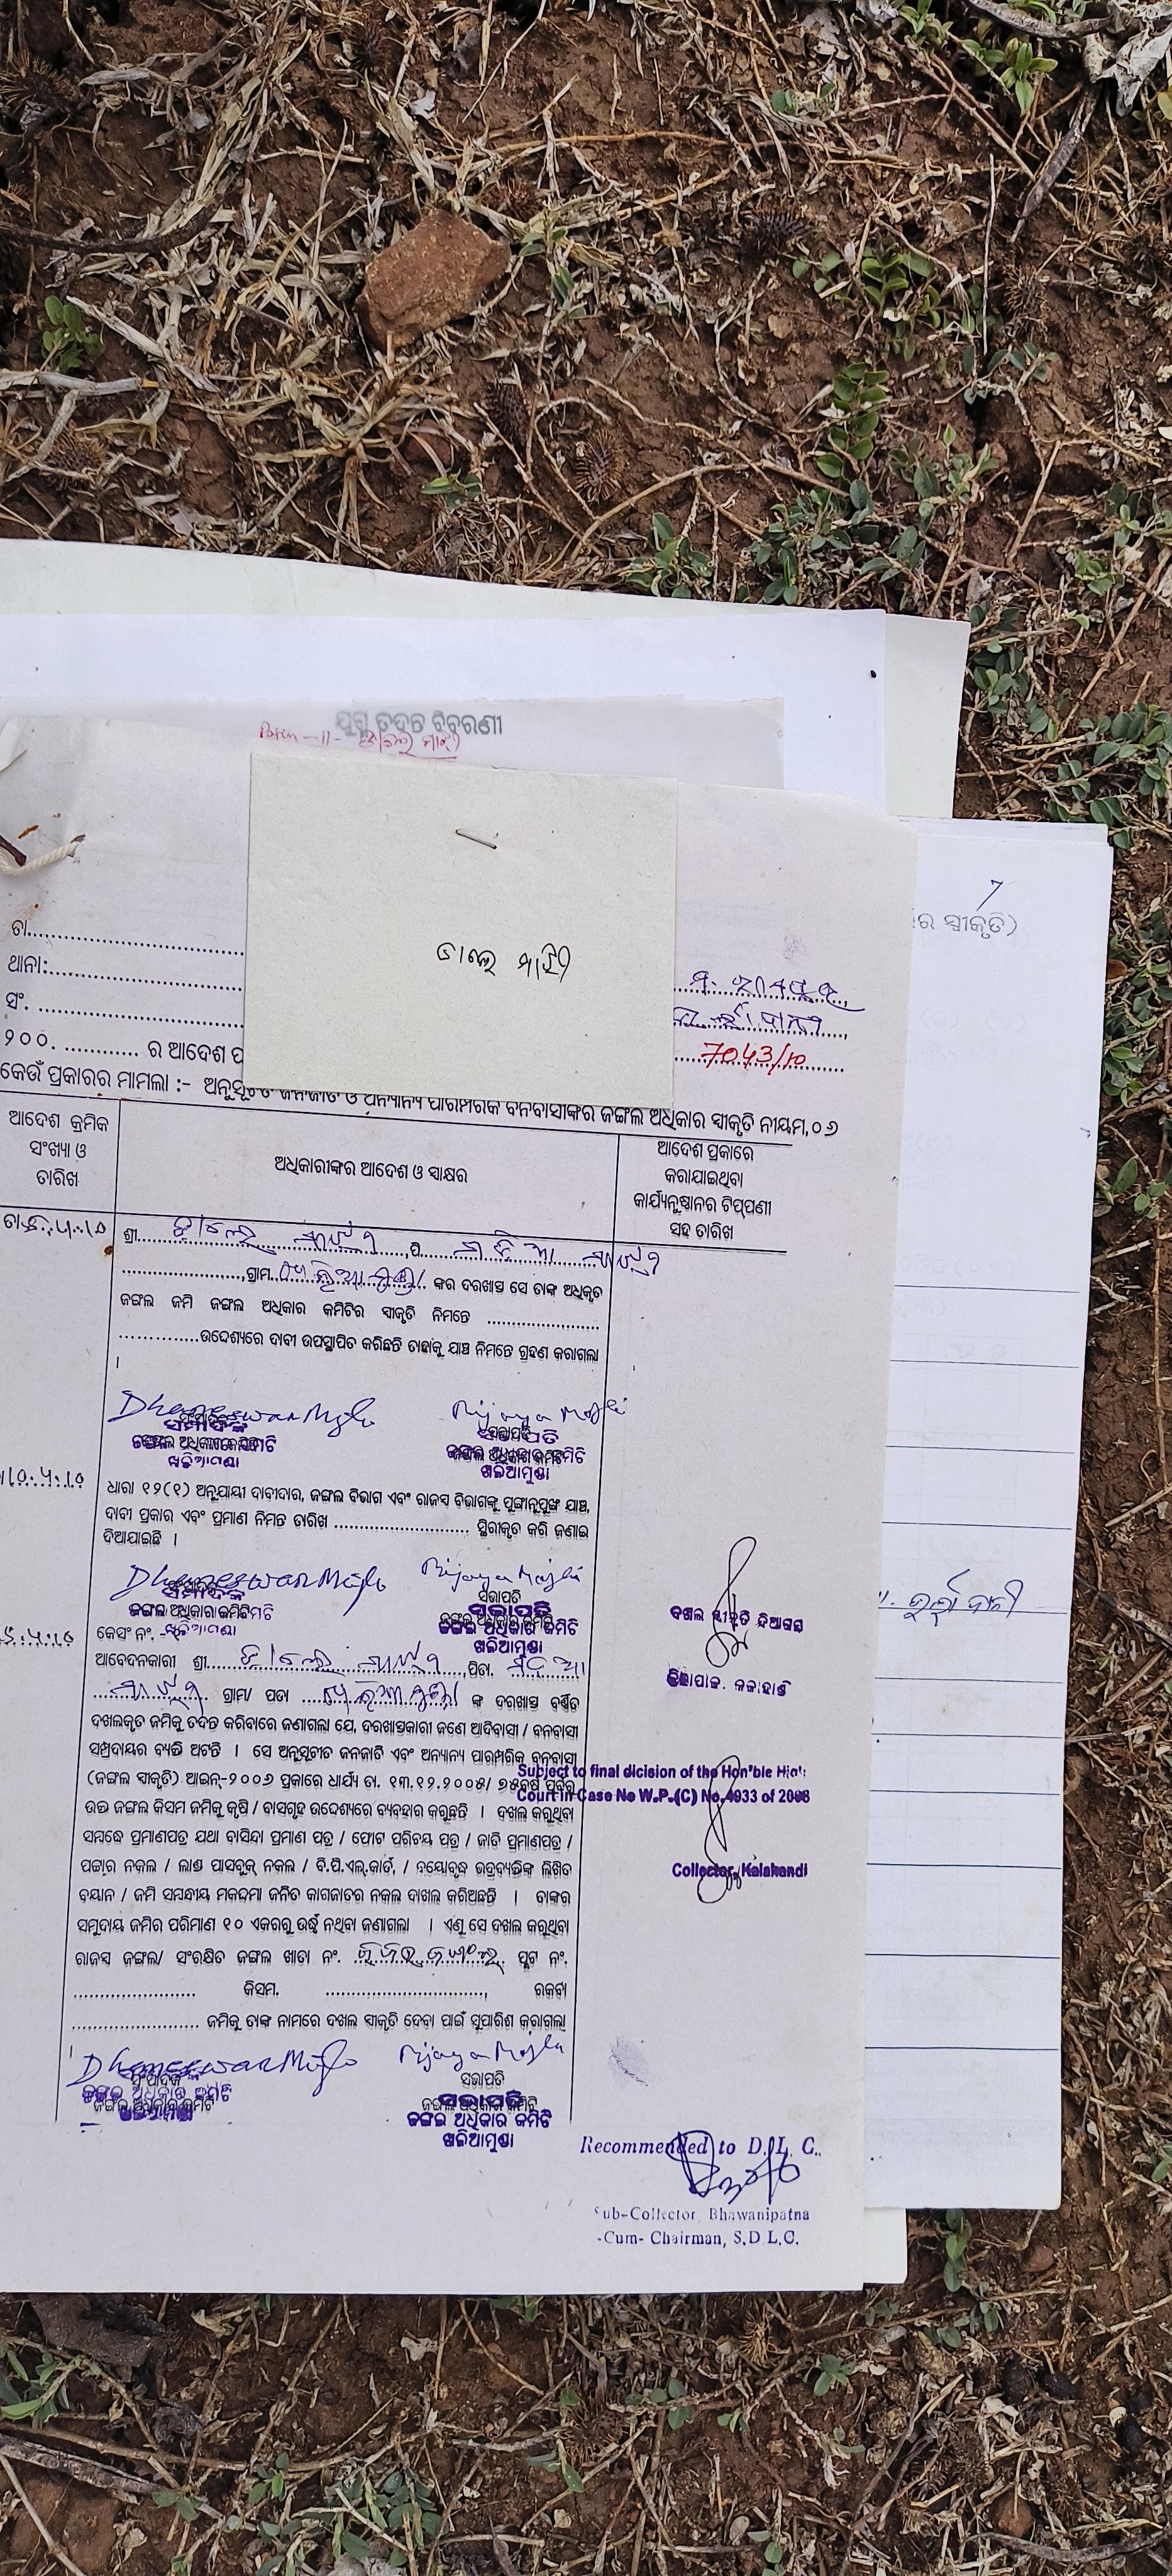 ଯୁଗ୍ମ ତଦନ୍ତ ବିବରଣୀ
7
ର ସ୍ୱୀକୃତି)
ତା
ଥାନା:
ସଂ.
7043/10
୨୦୦. ର ଆଦେଶ
କେଉଁ ପ୍ରକାରର ମାମଲା :- ଅନୁସୂଚିତ ଜନଜାତି ଓ ଅନ୍ୟାନ୍ୟ ପାରମ୍ପରିକ ବନବାସୀଙ୍କର ଜଙ୍ଗଲ ଅଧିକାର ସ୍ୱୀକୃତି ନୀୟମ,୦୬
ଆଦେଶ କ୍ରମିକ
ସଂଖ୍ୟା ଓ
ତାରିଖ
ଅଧିକାରୀଙ୍କର ଆଦେଶ ଓ ସାକ୍ଷର
ଆଦେଶ ପ୍ରକାରେ
କରାଯାଇଥିବା
କାର୍ଯ୍ୟନୁଷ୍ଠାନର ଟିପ୍ପଣୀ
ସହ ତାରିଖ
ଶ୍ରୀ ,ପି.
,ଗ୍ରାମ ଙ୍କର ଦରଖାସ୍ତ ସେ ତାଙ୍କ ଅଧିକୃତ
ଜଙ୍ଗଲ ଜମି ଜଙ୍ଗଲ ଅଧିକାର କମିଟିର ସ୍ୱୀକୃତି ନିମନ୍ତେ
ଉଦ୍ଦେଶ୍ୟରେ ଦାବୀ ଉପସ୍ଥାପିତ କରିଛନ୍ତି ତାହାକୁ ଯାଞ୍ଚ ନିମନ୍ତେ ଗ୍ରହଣ କରାଗଲା
।
Dhaneswar Majhi
Bijaya Majhi
ସଂପାଦକ
ସଭାପତି
ଜଙ୍ଗଲ ଅଧିକାର କମିଟି
ଜଙ୍ଗଲ ଅଧିକାର କମିଟି
ଖଲିଆମୁଣ୍ଡା
ଖଲିଆମୁଣ୍ଡା
ଧାରା ୧୨(୧) ଅନୁଯାୟୀ ଦାବୀଦାର, ଜଙ୍ଗଲ ବିଭାଗ ଏବଂ ରାଜସ୍ୱ ବିଭାଗଙ୍କୁ ପୁଙ୍ଖାନୁପୁଙ୍ଖ ଯାଞ୍ଚ,
ଦାବୀ ପ୍ରକାର ଏବଂ ପ୍ରମାଣ ନିମନ୍ତ ତାରିଖ ସ୍ଥିରୀକୃତ କରି ଜଣାଇ
ଦିଆଯାଇଛି ।
Dhaneswar Majhi
Bijaya Majhi
ସଂପାଦକ
ସଭାପତି
ଜଙ୍ଗଲ ଅଧିକାର କମିଟି
ଜଙ୍ଗଲ ଅଧିକାର କମିଟି
ଖଲିଆମୁଣ୍ଡା
ଖଲିଆମୁଣ୍ଡା
ଦଖଲ ସ୍ୱୀକୃତି ଦିଆଗଲା
ଜିଲ୍ଲାପାଳ. କଳାହାଣ୍ଡି
କେସଂ ନଂ. -
ଆବେଦନକାରୀ ଶ୍ରୀ ,ପିତା.
ଗ୍ରାମ/ ପଡା ଙ୍କ ଦରଖାସ୍ତ ବର୍ଣ୍ଣିତ
ଦଖଲକୃତ ଜମିକୁ ତଦନ୍ତ କରିବାରେ ଜଣାଗଲା ଯେ, ଦରଖାସ୍ତକାରୀ ଜଣେ ଆଦିବାସୀ / ବନବାସୀ
ସମ୍ପ୍ରଦାୟର ବ୍ୟକ୍ତି ଅଟନ୍ତି । ସେ ଅନୁସୂଚୀତ ଜନଜାତି ଏବଂ ଅନ୍ୟାନ୍ୟ ପାରମ୍ପରିକ ବନବାସୀ
(ଜଙ୍ଗଲ ସ୍ୱୀକୃତି) ଆଇନ୍-୨୦୦୬ ପ୍ରକାରେ ଧାର୍ଯ୍ୟ ତା. ୧୩.୧୨.୨୦୦୫/ ୭୫ବର୍ଷ ପୂର୍ବରୁ
ଉକ୍ତ ଜଙ୍ଗଲ କିସମ ଜମିକୁ କୃଷି / ବାସଗୃହ ଉଦ୍ଦେଶ୍ୟରେ ବ୍ୟବହାର କରୁଛନ୍ତି । ଦଖଲ କରୁଥିବା
ସମ୍ବନ୍ଧେ ପ୍ରମାଣପତ୍ର ଯଥା ବାସିନ୍ଦା ପ୍ରମାଣ ପତ୍ର / ଫୋଟ ପରିଚୟ ପତ୍ର / ଜାତି ପ୍ରମାଣପତ୍ର /
ପଟ୍ଟାର ନକଲ / ଲାଣ୍ଡ ପାସବୁକ୍ ନକଲ / ବି.ପି.ଏଲ୍.କାର୍ଡ, / ବୟୋବୃଦ୍ଧ ଭଦ୍ରବ୍ୟକ୍ତିଙ୍କ ଲିଖିତ
ବୟାନ / ଜମି ସମ୍ବନ୍ଧୀୟ ମକଦ୍ଦମା ଜନିତ କାଗଜାତର ନକଲ ଦାଖଲ କରିଅଛନ୍ତି । ତାଙ୍କର
ସମୁଦାୟ ଜମିର ପରିମାଣ ୧୦ ଏକରରୁ ଉର୍ଦ୍ଧ୍ୱ ନଥିବା ଜଣାଗଲା । ଏଣୁ ସେ ଦଖଲ କରୁଥିବା
ରାଜସ୍ୱ ଜଙ୍ଗଲ/ ସଂରକ୍ଷିତ ଜଙ୍ଗଲ ଖାତା ନଂ. ପ୍ଲଟ ନଂ.
କିସମ. , ରକବା
ଜମିକୁ ତାଙ୍କ ନାମରେ ଦଖଲ ସ୍ୱୀକୃତି ଦେବା ପାଇଁ ସୁପାରିଶ କରାଗଲା
।
Subject to final dicision of the Hon'ble High
Court in Case No W.P.(C) No.4933 of 2008
Collector, Kalahandi
Dhaneswar Majhi
Bijaya Majhi
ସଂପାଦକ
ସଭାପତି
ଜଙ୍ଗଲ ଅଧିକାର କମିଟି
ଜଙ୍ଗଲ ଅଧିକାର କମିଟି
ଖଲିଆମୁଣ୍ଡା
Recommended to D.L.C.
Sub-Collector, Bhawanipatna
-Cum- Chairman, S.D.L.C.